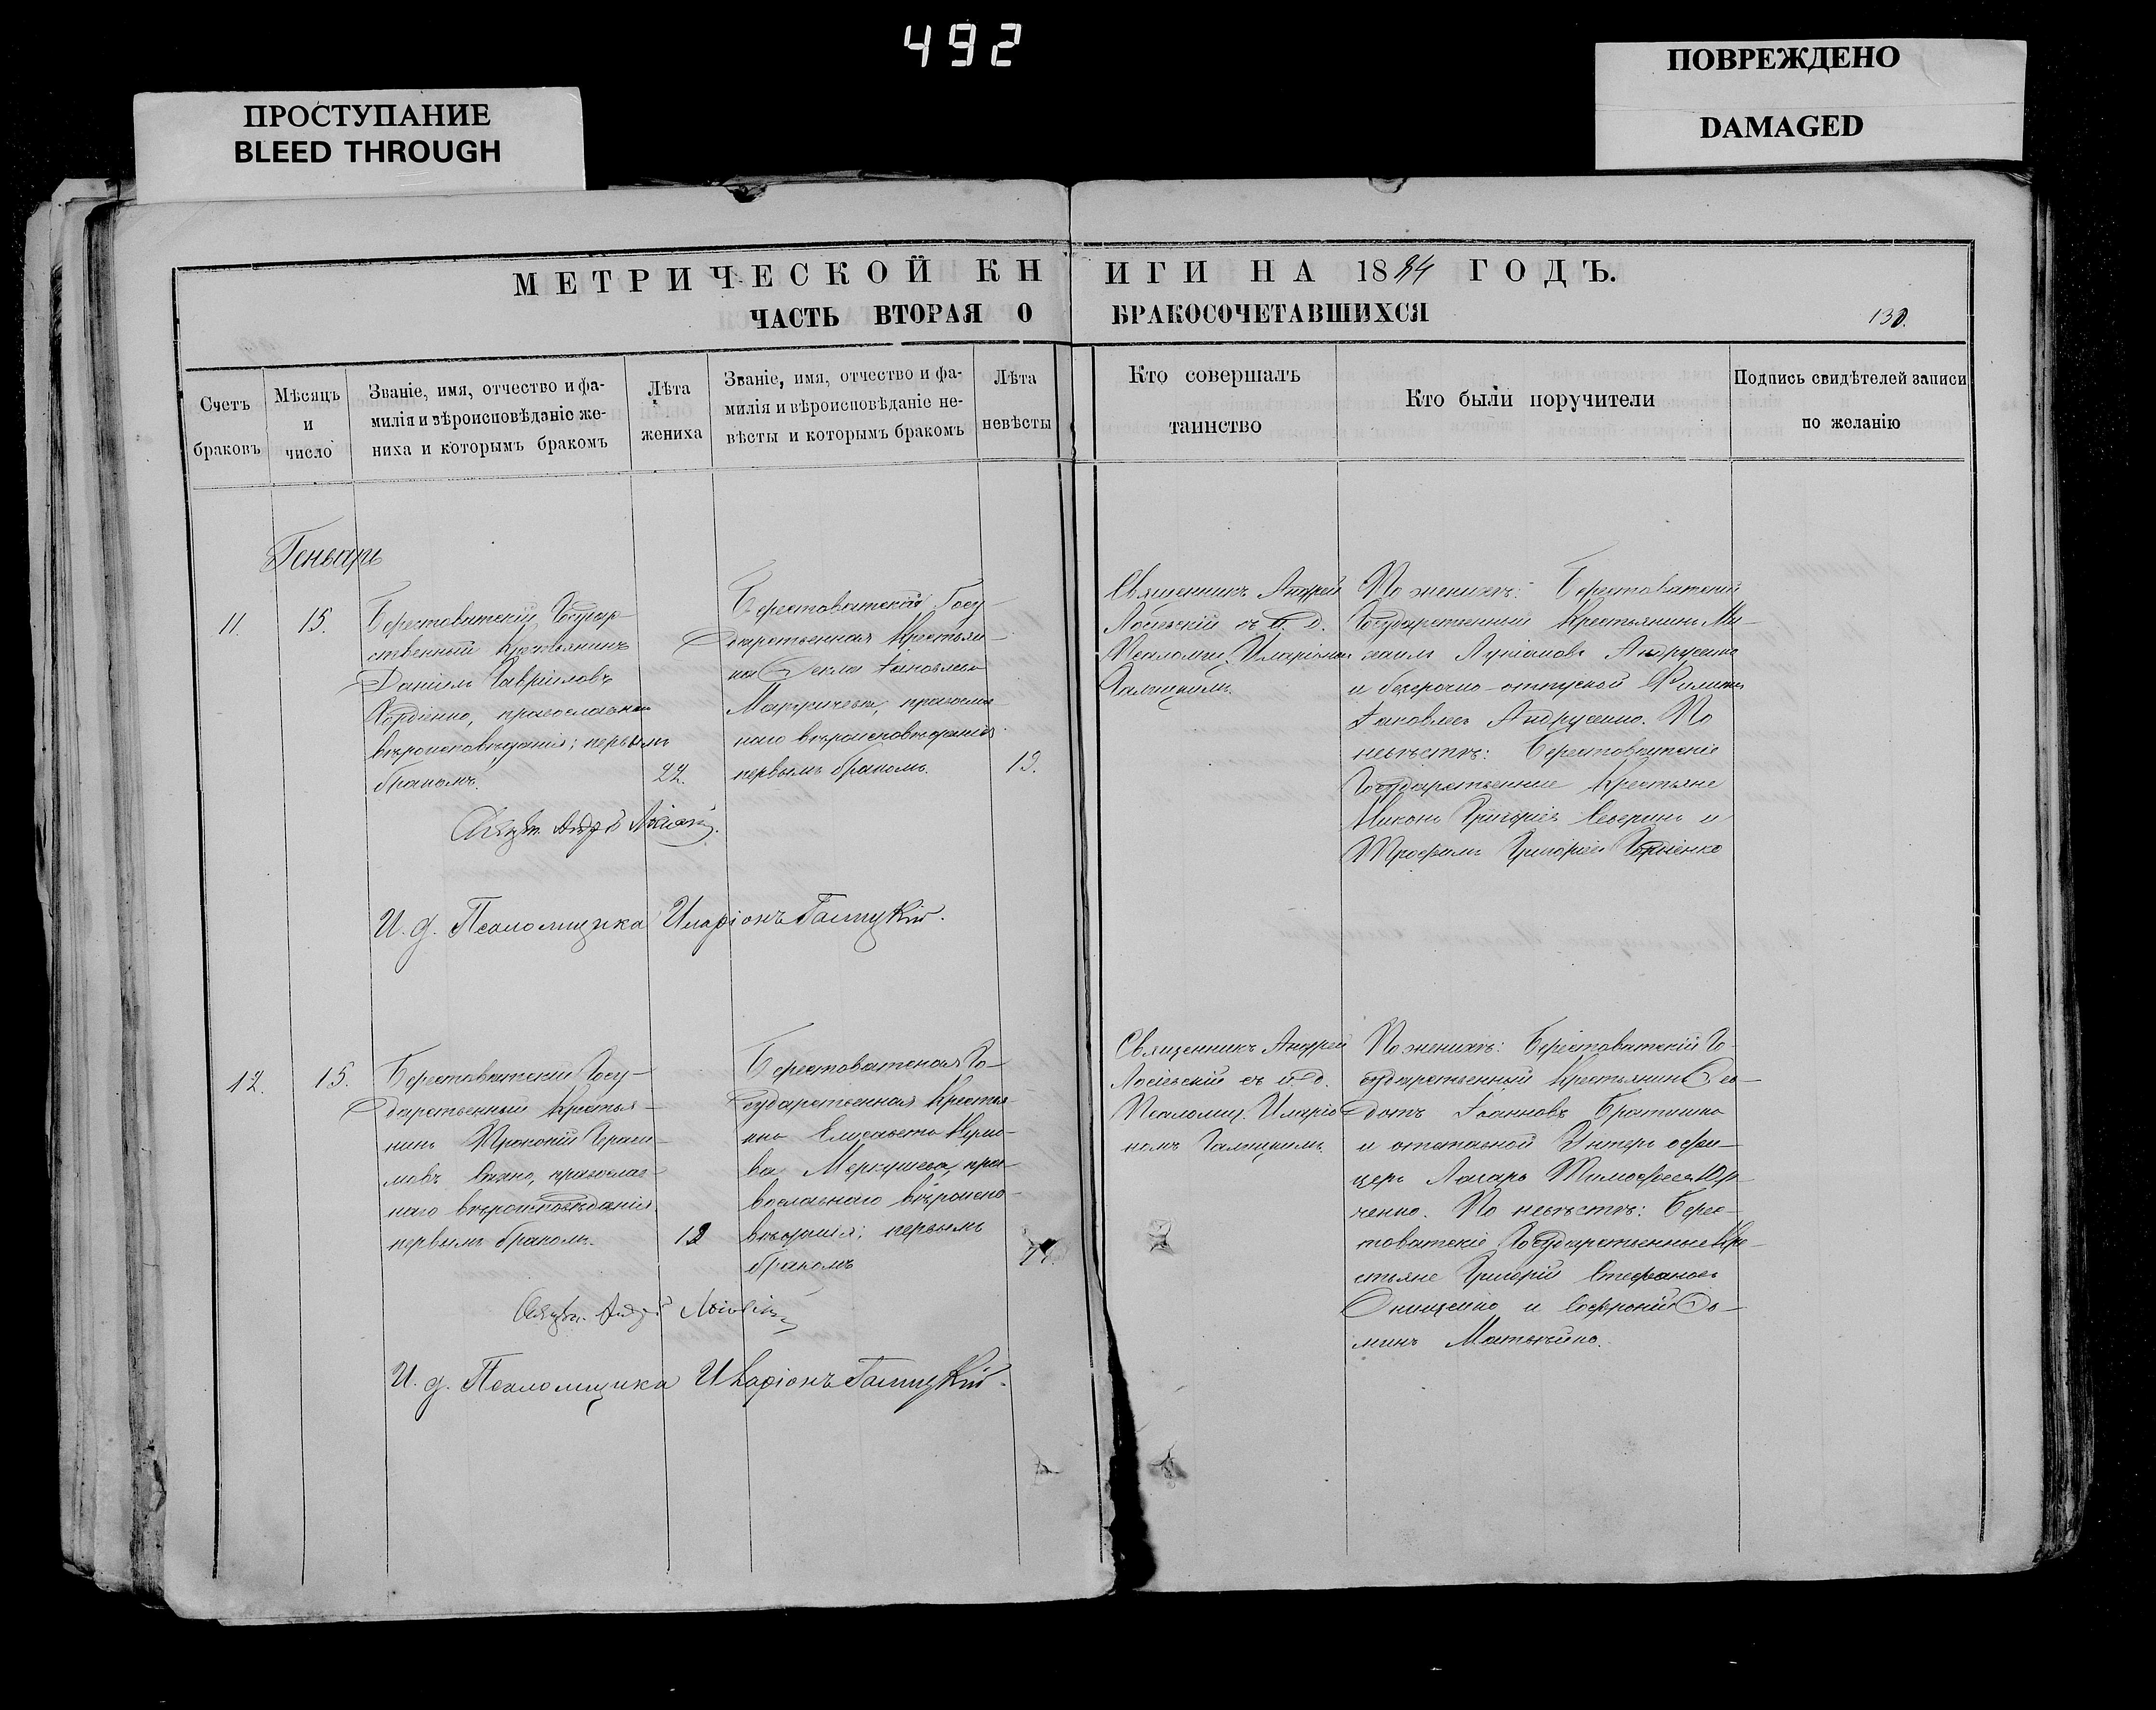 492
ПРОСТУПАНИЕ
BLEED THROUGH
ПОВРЕЖДЕНО
DAMAGED
МЕТРИЧЕСКОЙ КНИГИ НА 1884 ГОДЪ.
ЧАСТЬ ВТОРАЯ О БРАКОСОЧЕТАВШИХСЯ
Счетъ
браковъ
Мѣсяцъ
и
число
Званіе, имя, отчество и фа-
милія и вѣроисповѣданіе же-
ниха и которымъ бракомъ
Лѣта
жениха
Званіе, имя, отчество и фа-
милія и вѣроисповѣданіе не-
вѣсты и которымъ бракомъ
Лѣта
невѣсты
Кто совершалъ
таинство
Кто были поручители
Подпись свидѣтелей записи
по желанію
Геньварь
11.
15.
Берестоватскій Государ-
ственный Крестьянинъ
Даніилъ Гавріиловъ
Гордіенко, православнаго
вѣроисповѣданія; первымъ
бракомъ.
22.
Берестоватская Госу-
дарственная Крестьян-
ка Іаковлева
православ-
наго вѣроисповѣданія
первымъ бракомъ.
19.
Священникъ Андрей
съ И. Д.
Псаломщ. Иларіономъ
Галицкимъ.
По женихѣ: Берестоватскій
Государственный Крестьянинъ Ми-
хаилъ Андрусенко
и безсрочно-отпускной Филиппъ
Іаковлевъ Андрусенко. По
невѣстѣ: Берестоватскіе
Государственные Крестьяне
Никонъ Григоріевъ и
Трофимъ Григоріевъ Гордіенко
И. д. Псаломщика Иларіонъ Галицкій.
12.
15.
Берестоватскій Госу-
дарственный Крестья-
нинъ Прокопій Гераси-
мовъ православ-
наго вѣроисповѣданія
первымъ бракомъ.
Берестоватская Го-
сударственная Крестьян-
ка Елисавета
пра-
вославнаго вѣроиспо-
вѣданія; первымъ
бракомъ
Священникъ Андрей
съ И. Д.
Псаломщ. Иларіо-
номъ Галицкимъ.
По женихѣ: Берестоватскій Го-
сударственный Крестьянинъ Ѳео-
дотъ Іоанновъ
и отставной Унтеръ офи-
церъ Лазарь Тимофеевъ Юр-
ченко. По невѣстѣ: Берес-
товатскіе Государственные Кре-
стьяне Григорій Стефановъ
Онищенко и Софроній Ѳо-
минъ
И. д. Псаломщика Иларіонъ Галицкій.